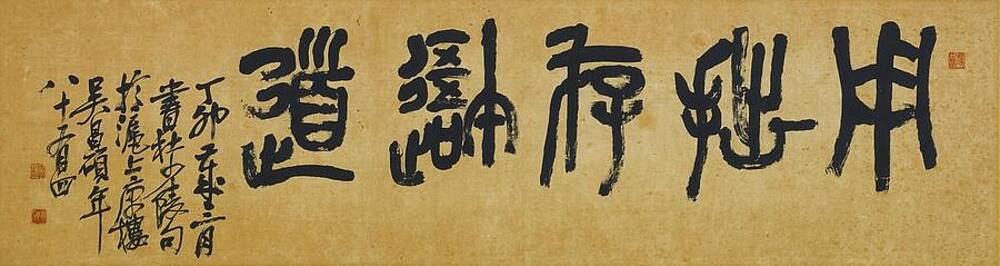 用拙存吾道
丁卯歲二月
書杜少陵句
於滬上樓
吳昌碩年
八十有四